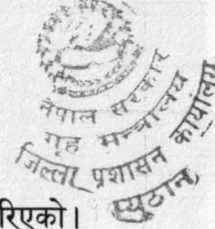 नेपाल सरकार
गृह मन्त्रालय
जिल्ला प्रशासन कार्यालय
प्यूठान
रिएको।